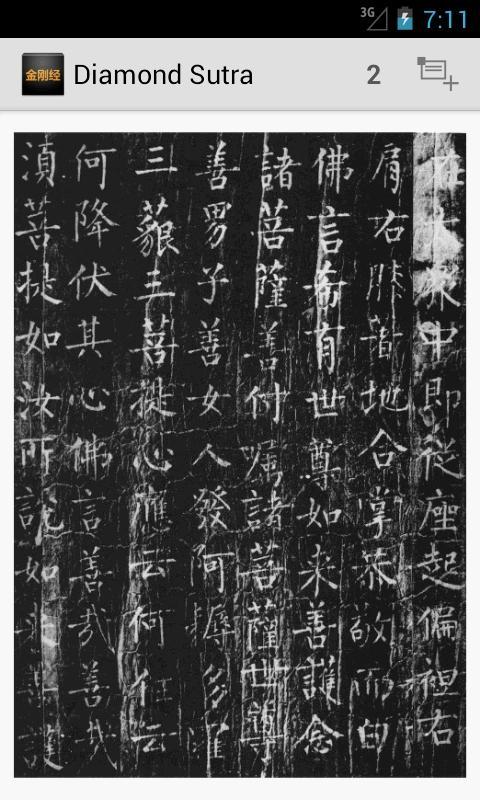 3G 7:11
金刚经 Diamond Sutra 2
在大衆中即從座起偏袒右
肩右膝著地合掌恭敬而白
佛言希有世尊如来善護念
諸菩薩善付嘱諸菩薩世尊
善男子善女人發阿耨多羅
三藐三菩提心應云何住云
何降伏其心佛言善哉善哉
湏菩提如汝所說如来善護